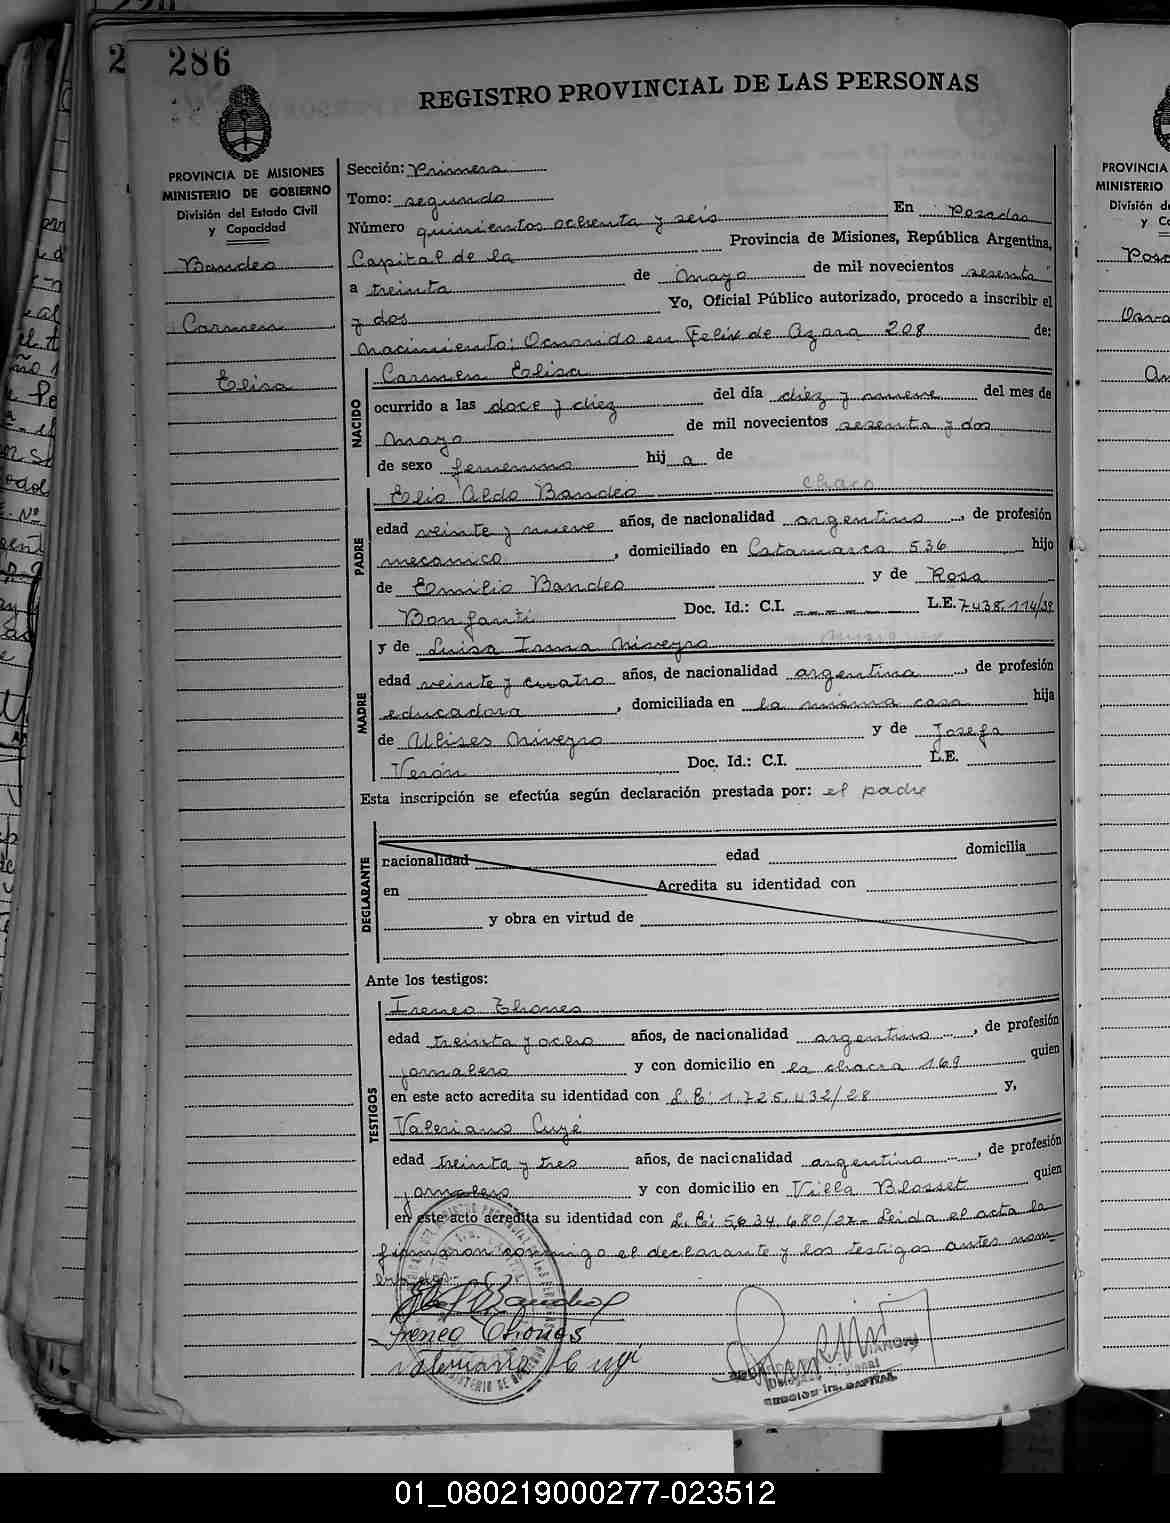 286
REGISTRO PROVINCIAL DE LAS PERSONAS
PROVINCIA DE MISIONES
MINISTERIO DE GOBIERNO
División del Estado Civil
y Capacidad
Bandeo
Carmen
Elisa
Sección: Primera
Tomo: segundo
Número quinientos ochenta y seis En Posadas
Capital de la Provincia de Misiones, República Argentina,
a treinta de Mayo de mil novecientos sesenta
y dos Yo, Oficial Público autorizado, procedo a inscribir el
Nacimiento: Ocurrido en Felix de Azara 208 de:
NACIDO
Carmen Elisa
ocurrido a las doce y diez del día diez y nueve del mes de
Mayo de mil novecientos sesenta y dos
de sexo femenino hij a de
PADRE
Elio Aldo Bandeo chaco
edad veinte y nueve años, de nacionalidad argentino, de profesión
mecanico, domiciliado en Catamarca 536 hijo
de Emilio Bandeo y de Rosa
Bonfanti Doc. Id.: C.I. ------ L.E. 7.438.114/32
MADRE
y de Luisa Irma Niveyro misiones
edad veinte y cuatro años, de nacionalidad argentina, de profesión
educadora, domiciliada en la misma casa hija
de Ulises Niveyro y de Josefa
Verón Doc. Id.: C.I. L.E.
Esta inscripción se efectúa según declaración prestada por: el padre
DECLARANTE
nacionalidad edad domicilia
en Acredita su identidad con
y obra en virtud de
Ante los testigos:
TESTIGOS
Ireneo Thiones
edad treinta y ocho años, de nacionalidad argentino, de profesión
jornalero y con domicilio en la chacra 169 quien
en este acto acredita su identidad con L.E: 1.725.432/28 y,
Valeriano Cuyé
edad treinta y tres años, de nacionalidad argentino, de profesión
jornalero y con domicilio en Villa Blosset quien
en este acto acredita su identidad con L.E: 5,634.680/27- Leida el acta la
firmaron conmigo el declarante y los testigos antes nom-
brados-
Ireneo
Valeriano
SECCION 1ra. CAPITAL
PROVINCIA
MINISTERIO
División d
y Ca
01_080219000277-023512